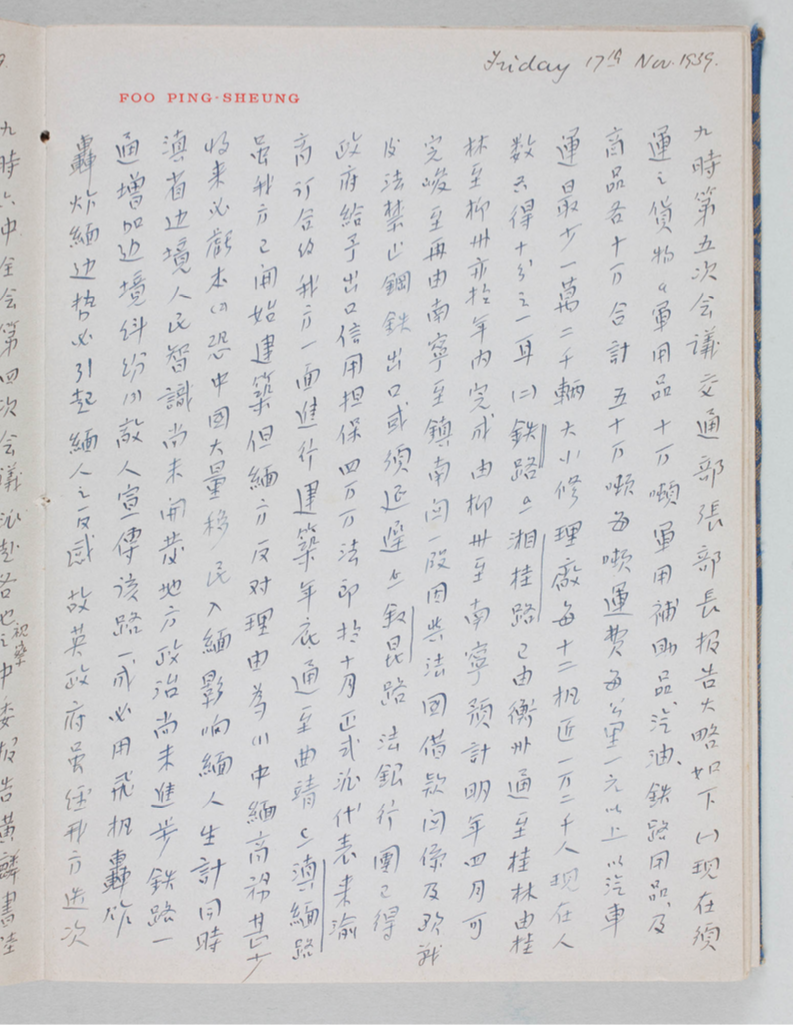 Friday 17th Nov. 1939.
FOO PING-SHEUNG
九時第五次会議交通部張部長报告大略如下(一)现在須
運之貨物a軍用品十万噸軍用補助品、汽油、鉄路用品、及
商品各十万合計五十万噸每噸運費每公里一元以上以汽車
運最少一萬二千輛大小修理廠每十二机近一万二千人现在人
数只得十分之一耳(二)鉄路a湘桂路已由衡州通至桂林由桂
林至柳州亦於年内完成由柳州至南寧預計明年四月可
完峻至再由南寧至鎮南関一段因與法國借款関係及欧战
後法禁止鋼鉄出口或須延遲b叙昆路法銀行團已得
政府給予出口信用担保四万万法郎於十月正式派代表来渝
商订合约我方一面進行建築年底通至曲靖c滇緬路
虽我方已開始建築但緬方反对理由為(1)中緬商務甚少
将来必虧本(2)恐中国大量移民入緬影响緬人生計同時
滇省边境人民智識尚未開發地方政治尚未進步鉄路一
通增加边境纠纷(3)敌人宣傳该路一成必用飛机轟炸
轟炸緬边势必引起緬人之反感故英政府虽经我方迭次
九時六中全会第四次会議
报告黄麟書